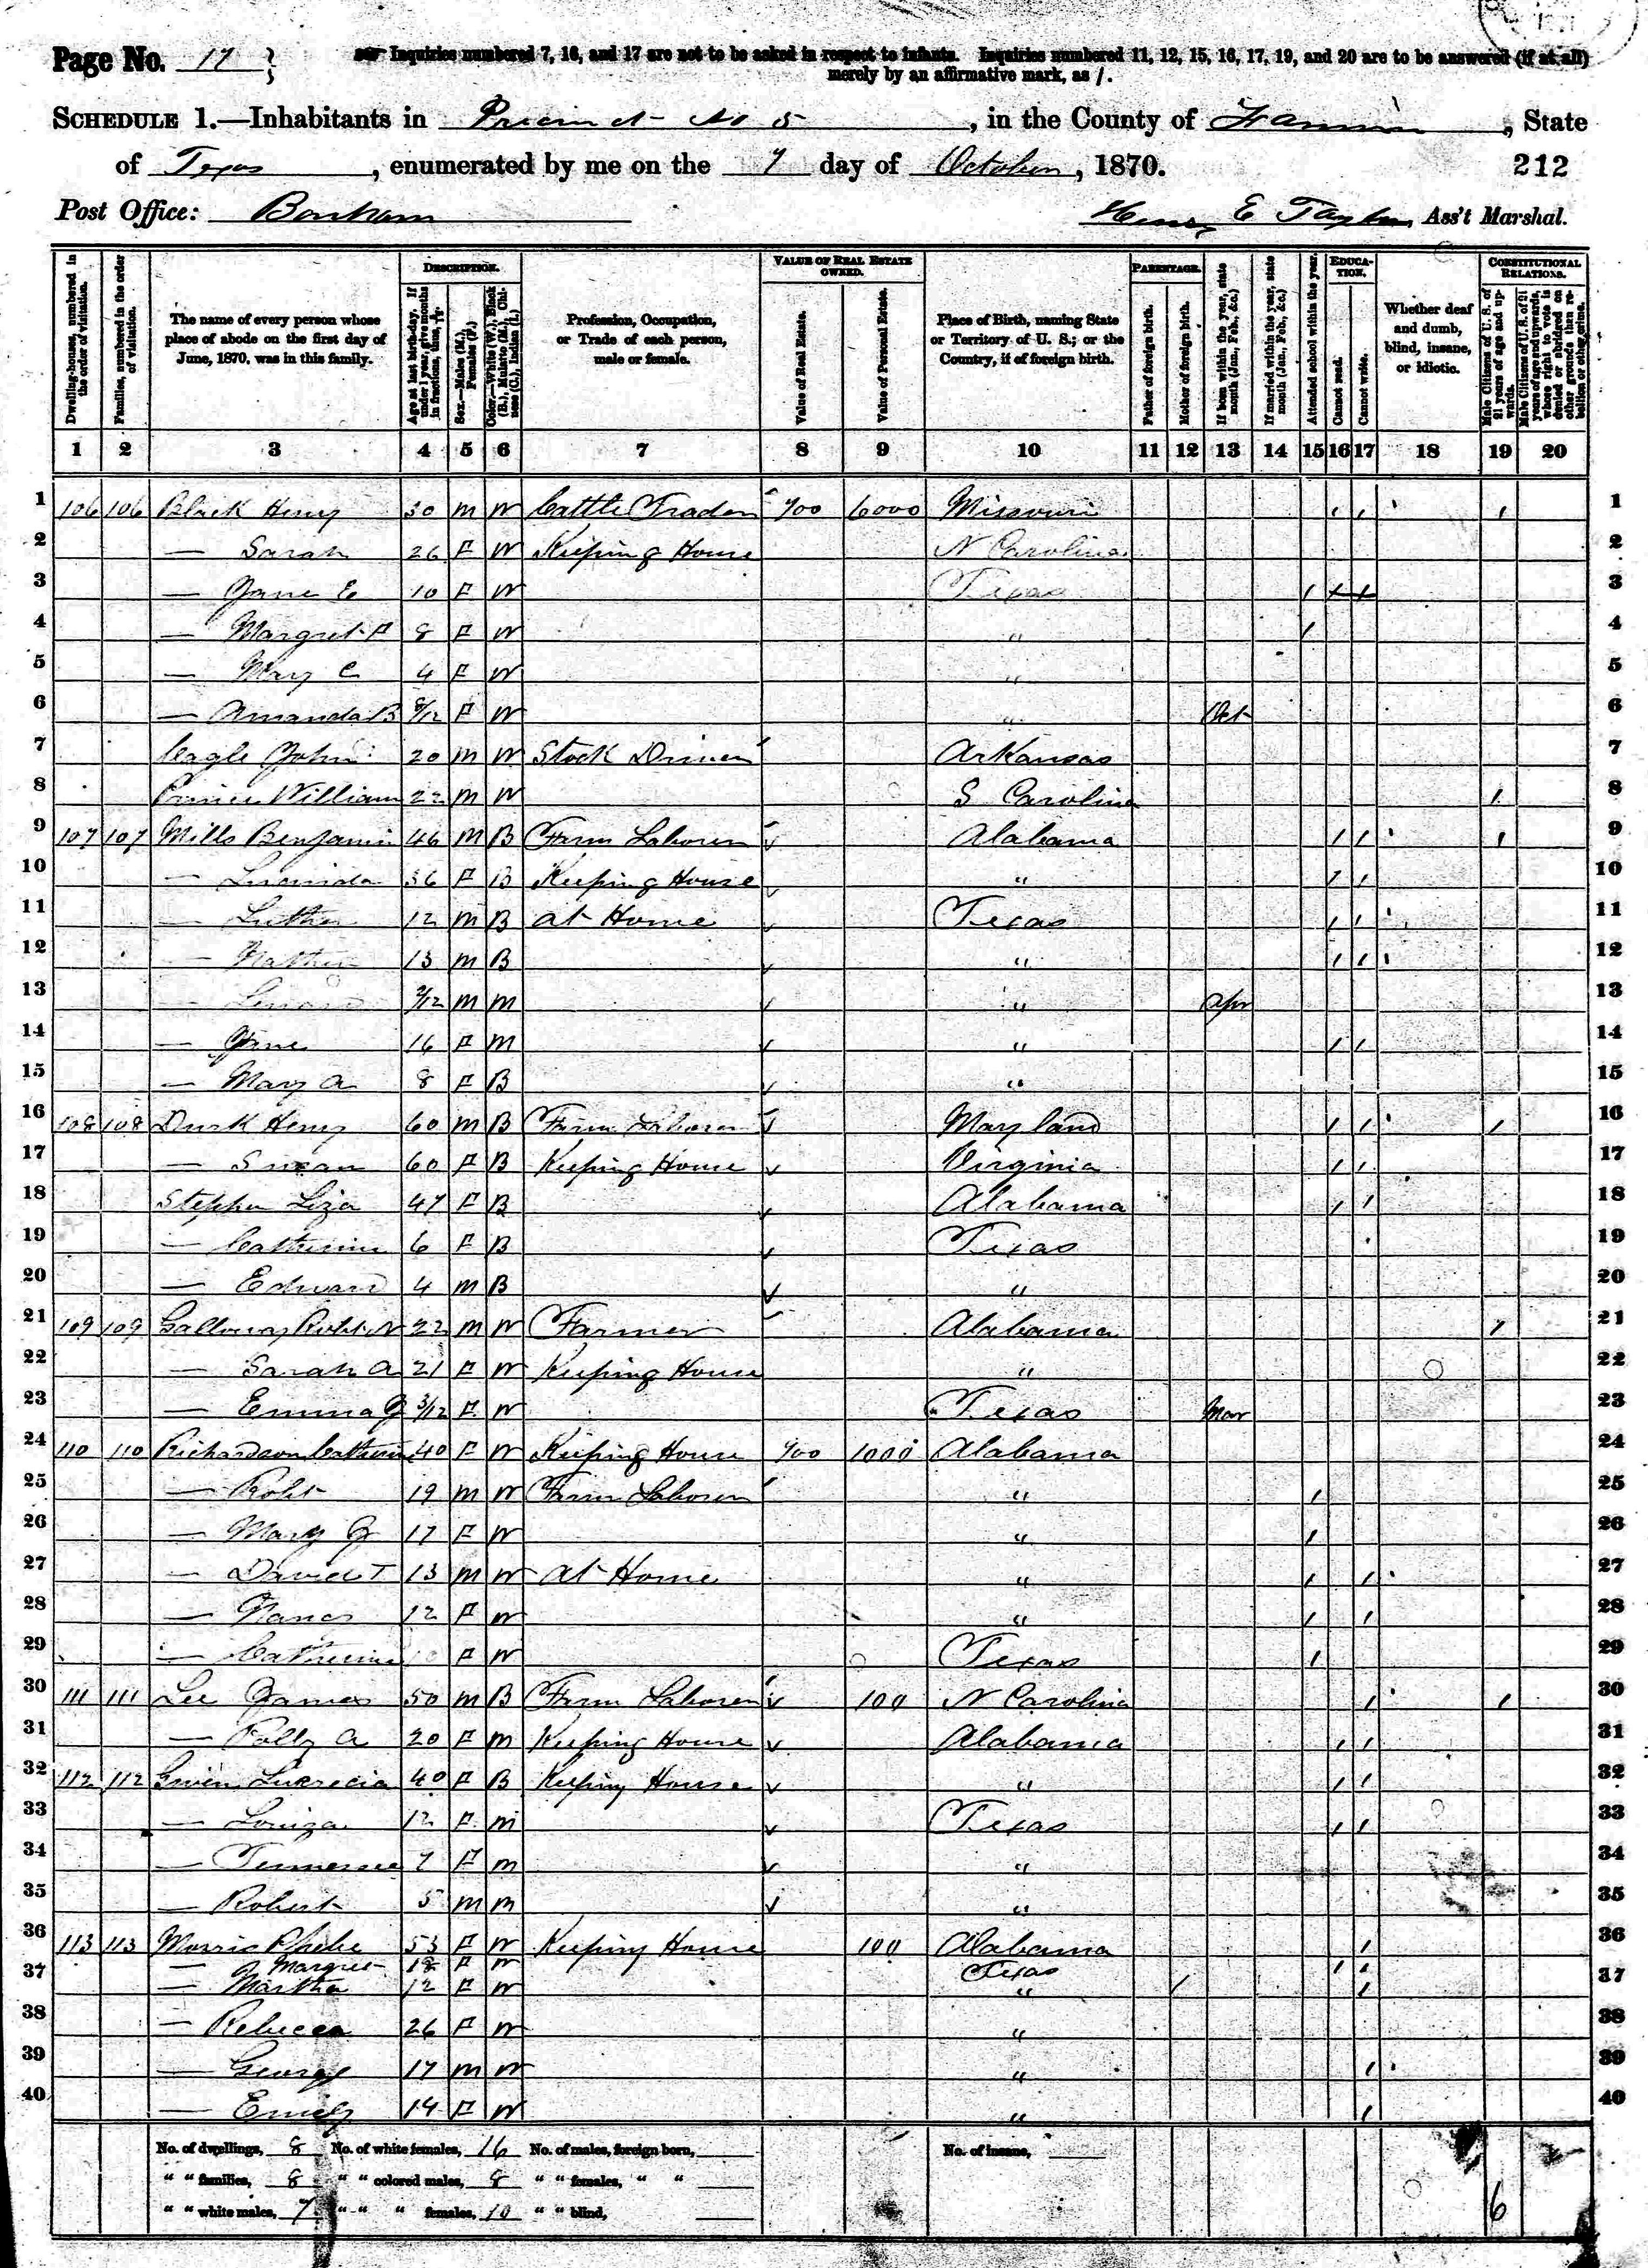 Page No. 17
Inquiries numbered 7, 16, and 17 are not to be asked in respect to infants. Inquiries numbered 11, 12, 15, 16, 17, 19, and 20 are to be answered (if at all)
merely by an affirmative mark, as /.
SCHEDULE 1.—Inhabitants in Precinct No 5, in the County of Fannin, State
of Texas, enumerated by me on the 7 day of October, 1870. 212
Post Office: Bonham E Taylor, Ass't Marshal.
Dwelling-houses, numbered in the order of visitation.
Families, numbered in the order of visitation.
The name of every person whose place of abode on the first day of June, 1870, was in this family.
DESCRIPTION.
Age at last birth-day. If under 1 year, give months in fractions, thus, 3/12.
Sex.—Males (M.), Females (F.)
Color.—White (W.), Black (B.), Mulatto (M.), Chinese (C.), Indian (I.)
Profession, Occupation, or Trade of each person, male or female.
VALUE OF REAL ESTATE OWNED.
Value of Real Estate.
Value of Personal Estate.
Place of Birth, naming State or Territory of U. S.; or the Country, if of foreign birth.
PARENTAGE.
Father of foreign birth.
Mother of foreign birth.
If born within the year, state month (Jan., Feb., &c.)
If married within the year, state month (Jan., Feb., &c.)
Attended school within the year.
EDUCATION.
Cannot read.
Cannot write.
Whether deaf and dumb, blind, insane, or idiotic.
CONSTITUTIONAL RELATIONS.
Male Citizens of U. S. of 21 years of age and upwards.
Male Citizens of U. S. of 21 years of age and upwards, whose right to vote is denied or abridged on other grounds than rebellion or other crime.
1 2 3 4 5 6 7 8 9 10 11 12 13 14 15 16 17 18 19 20
1 106 106 Black Henry 30 M W Cattle Trader 700 6000 Missouri / / / 1
2 — Sarah 26 F W Keeping House N Carolina 2
3 — Jane E 10 F W Texas / 3
4 — Margret F 8 F W " / 4
5 — Mary C 4 F W " 5
6 — Amanda B 8/12 F W " Oct 6
7 Cagle John 20 M W Stock Driver Arkansas 7
8 William 22 M W S Carolina / 8
9 107 107 Mills Benjamin 46 M B Farm Laborer Alabama / / / 9
10 — Lucinda 36 F B Keeping House " / / 10
11 — Luther 12 M B at Home Texas / / 11
12 — 13 M B " / / 12
13 — 2/12 M M " Apr 13
14 — Jane 16 F M " / / 14
15 — Mary A 8 F B " 15
16 108 108 Durk Henry 60 M B Farm Laborer Maryland / / / 16
17 — Susan 60 F B Keeping House Virginia / / 17
18 Stephen Liza 47 F B Alabama / / 18
19 — Catherine 6 F B Texas 19
20 — Edward 4 M B " 20
21 109 109 Galloway Robt N 22 M W Farmer Alabama / 21
22 — Sarah A 21 F W Keeping House " 22
23 — Emma J 3/12 F W Texas Mar 23
24 110 110 Richardson Catherine 40 F W Keeping House 700 1000 Alabama 24
25 — Robt 19 M W Farm Laborer " / 25
26 — Mary J 17 F W " / 26
27 — David T 13 M W at Home " / / 27
28 — Nancy 12 F W " / / 28
29 — Catherine F W Texas / 29
30 111 111 Lee James 50 M B Farm Laborer 100 N Carolina / / 30
31 — Polly A 20 F M Keeping House Alabama / / 31
32 112 112 Lucrecia 40 F B Keeping House " / / 32
33 — Louiza 12 F M Texas / / 33
34 — Tennessee 7 F M " 34
35 — Robert 5 M M " 35
36 113 113 Morris Phebe 53 F W Keeping House 100 Alabama / 36
— Margret 18 F W Texas / /
37 — Martha 12 F W " / / 37
38 — Rebecca 26 F W " 38
39 — George 17 M W " / 39
40 — Emily 14 F W " / 40
No. of dwellings, 8 No. of white females, 16 No. of males, foreign born, No. of insane,
" " families, 8 " " colored males, 8 " " females, " "
" " white males, 7 " " " females, 10 " " blind, 6